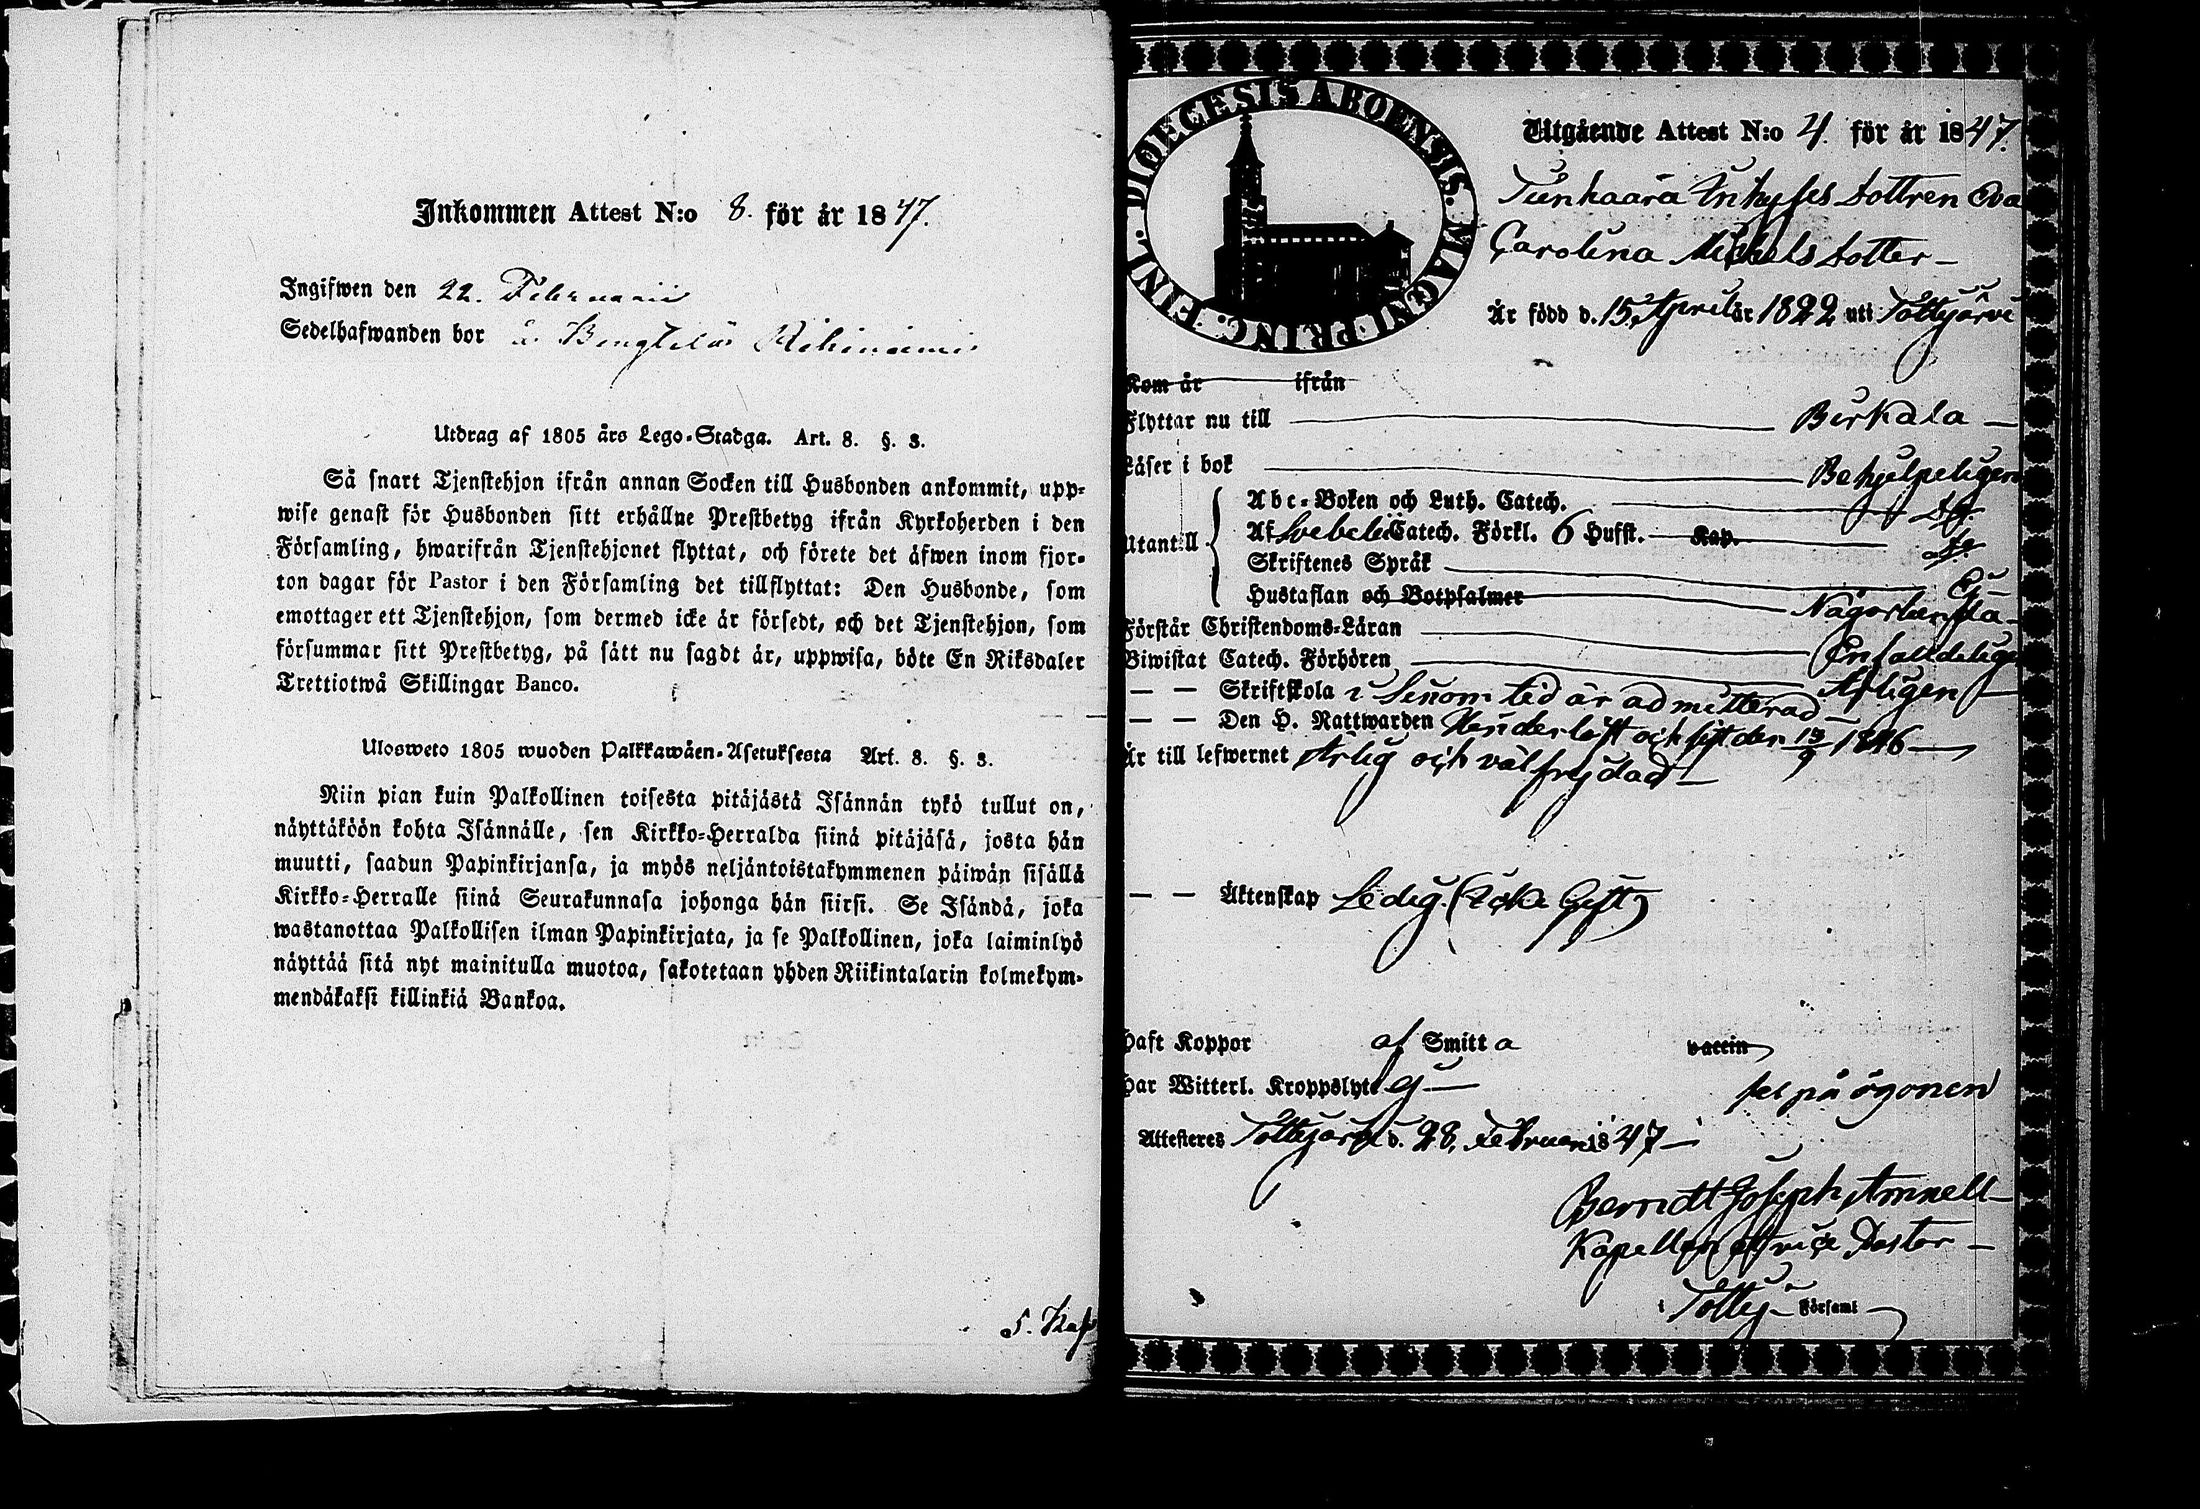 Inkommen Attest N:o 8. för år 1847.
Ingifwen den 22. Februarii
Sedelhafwanden bor å Bengtilä
Utdrag af 1805 års Lego-Stadga. Art. 8. §. 3.
Så snart Tjenstehjon ifrån annan Socken till Husbonden ankommit, upp-
wise genast för Husbonden sitt erhållne Prestbetyg ifrån Kyrkoherden i den
Församling, hwarifrån Tjenstehjonet flyttat, och förete det äfwen inom fjor-
ton dagar för Pastor i den Församling det tillflyttat: Den Husbonde, som
emottager ett Tjenstehjon, som dermed icke är försedt, och det Tjenstehjon, som
försummar sitt Prestbetyg, på sätt nu sagdt är, uppwisa, böte En Riksdaler
Trettiotwå Skillingar Banco.
Ulosweto 1805 wuoden Palkkawäen-Asetuksesta Art. 8. §. 3.
Niin pian kuin Palkollinen toisesta pitäjästä Isännän tykö tullut on,
näyttäköön kohta Isännälle, sen Kirkko-Herralda siinä pitäjäsä, josta hän
muutti, saadun Papinkirjansa, ja myös neljäntoistakymmenen päiwän sisällä
Kirkko-Herralle siinä Seurakunnasa johonga hän siirsi. Se Isändä, joka
wastanottaa Palkollisen ilman Papinkirjata, ja se Palkollinen, joka laiminlyö
näyttää sitä nyt mainitulla muotoa, sakotetaan yhden Riikintalarin kolmekym-
mendäkaksi killinkiä Bankoa.
DIOECESIS ABOENSIS. MAGNI PRINC. FINL.
Utgående Attest N:o 4. för år 1847.
Inhyses Dottren Eva
Carolina Michels dotter
Är född d. 15 April år 1822 uti Tottijärvi
Kom år ifrån
Flyttar nu till Birkala
Läser i bok Behjelpeligen
Abc-Boken och Luth. Catech. Do.
Utantill Af Svebelii Catech. Förkl. 6 Hufst. Kap. Do.
Skriftenes Språk Ej
Hustaflan och Botpsalmer Någorlunda
Förstår Christendoms-Läran Enfaldeligen
Biwistat Catech. Förhören Årligen
— — Skriftskola i Sinom tid är admitterad
— — Den H. Nattwarden och sist den 13/9 1846
Är till lefwernet Ärlig och välfrejdad
— — Äktenskap Ledig. (icke Gift)
Haft Koppor af Smitta vaccin
Har Witterl. Kroppslyte Ej fel på ögonen
Attesteres Tottijärvi d. 28. Februari 1847
Berndt Joseph Amnell
Kapellan och vice Pastor
i Tottij. Församl